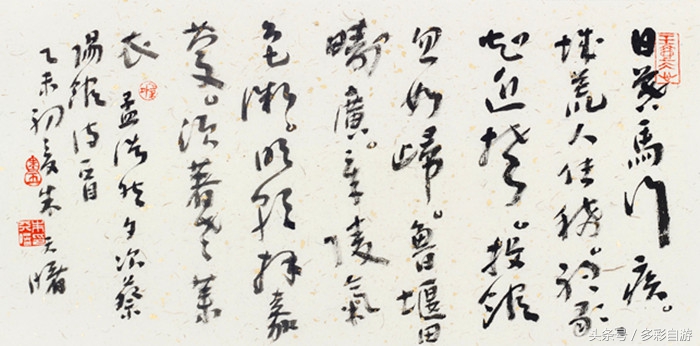 日暮馬行疾。
城荒人住稀。聽歌
知近楚。投館
忽如歸。魯堰田
疇廣。章陵氣
色微。明朝拜嘉
慶。須著老萊
衣 孟浩然夕次蔡
陽館詩一首
乙未初夏朱天曙
头条号 / 多彩自游